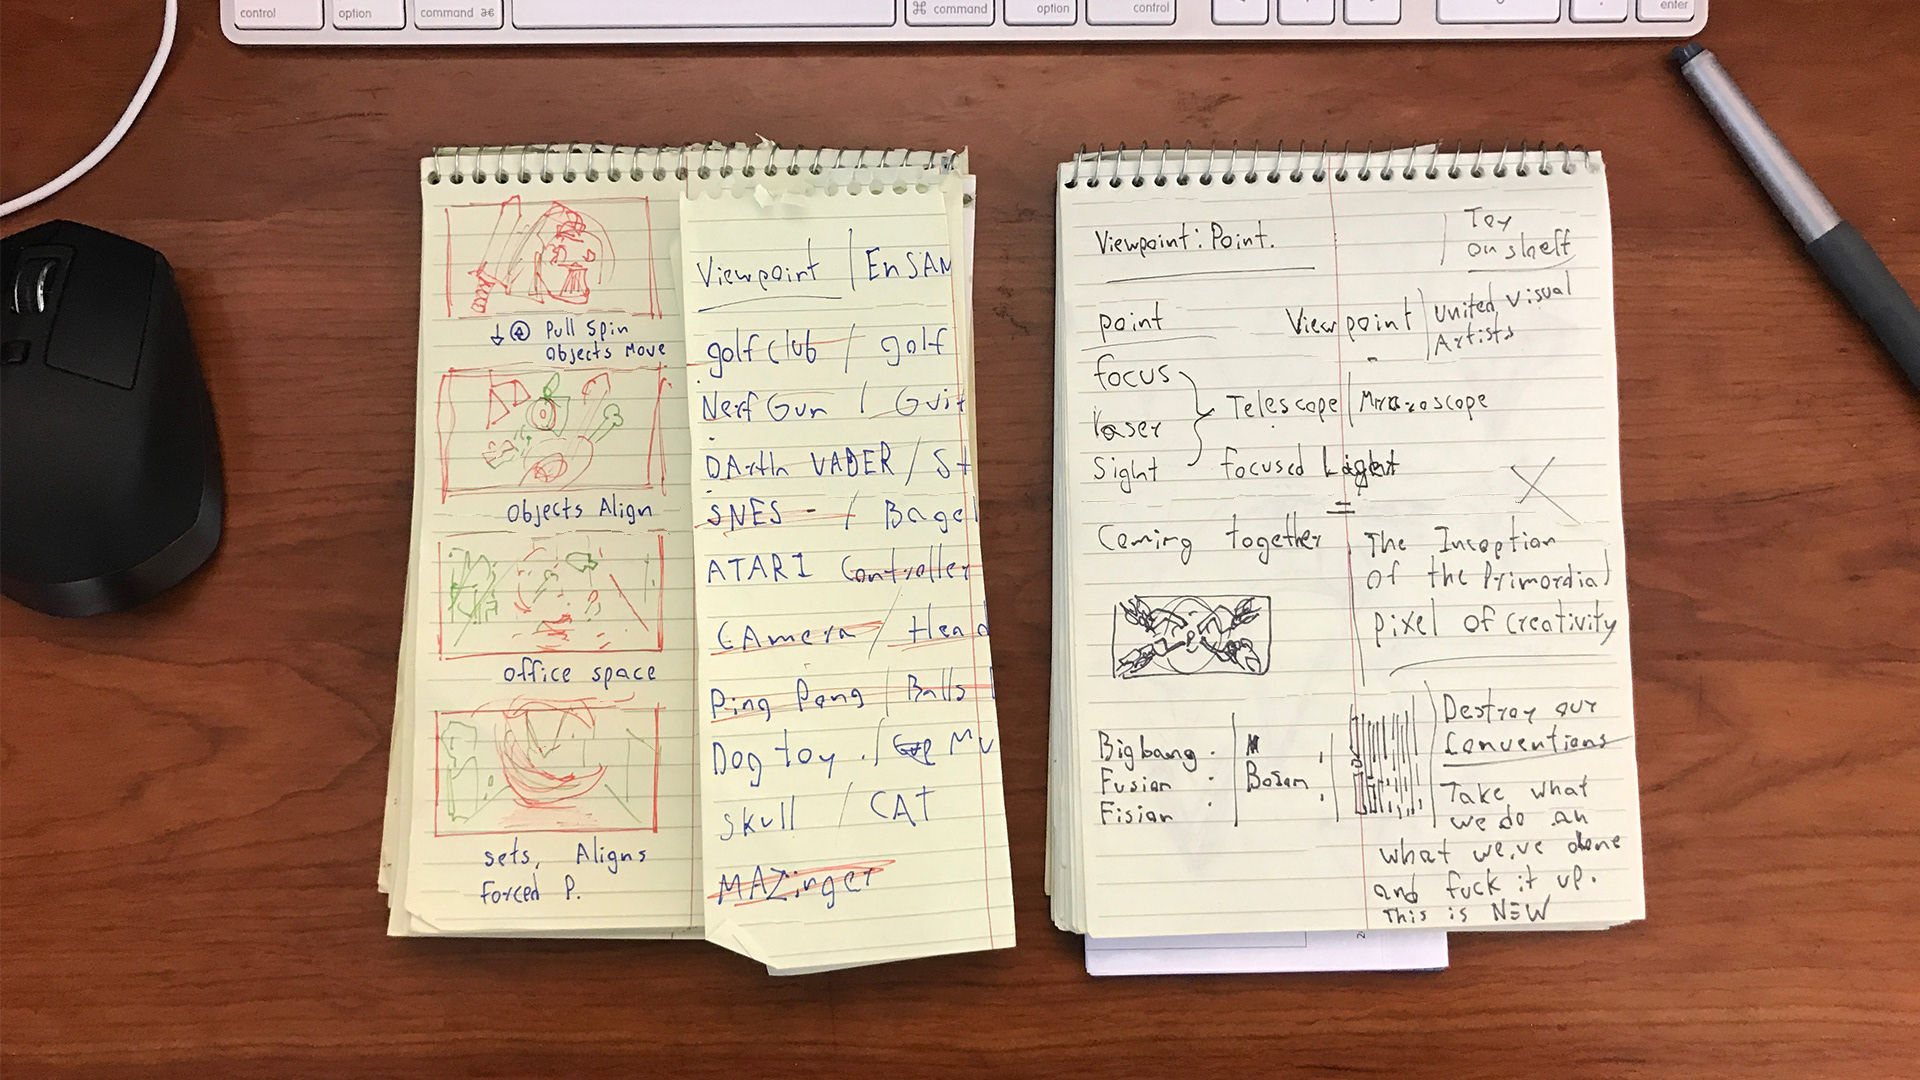 control
option
command
⌘ command
option
control
enter
↓ Pull Spin
Objects Move
Objects Align
office space
sets, Aligns
Forced P.
Viewpoint | EnSAM
golf club / golf
Nerf Gun / Guit
DArth VADER / St
SNES - / Bagel
ATARI Controller
CAmera / Head
Ping Pong / Balls
Dog toy / Mu
Skull / CAT
MAZinger
Viewpoint: Point.
Toy
on shelf
point
Viewpoint
United Visual
Artists
focus
Laser
Sight
Telescope / Microscope
focused Light
=
Coming together
The Inception
of the Primordial
pixel of creativity
Big bang.
Fusion
Fision
Destroy our
Conventions
Take what
we do an
what we,ve done
and fuck it up.
This is NEW